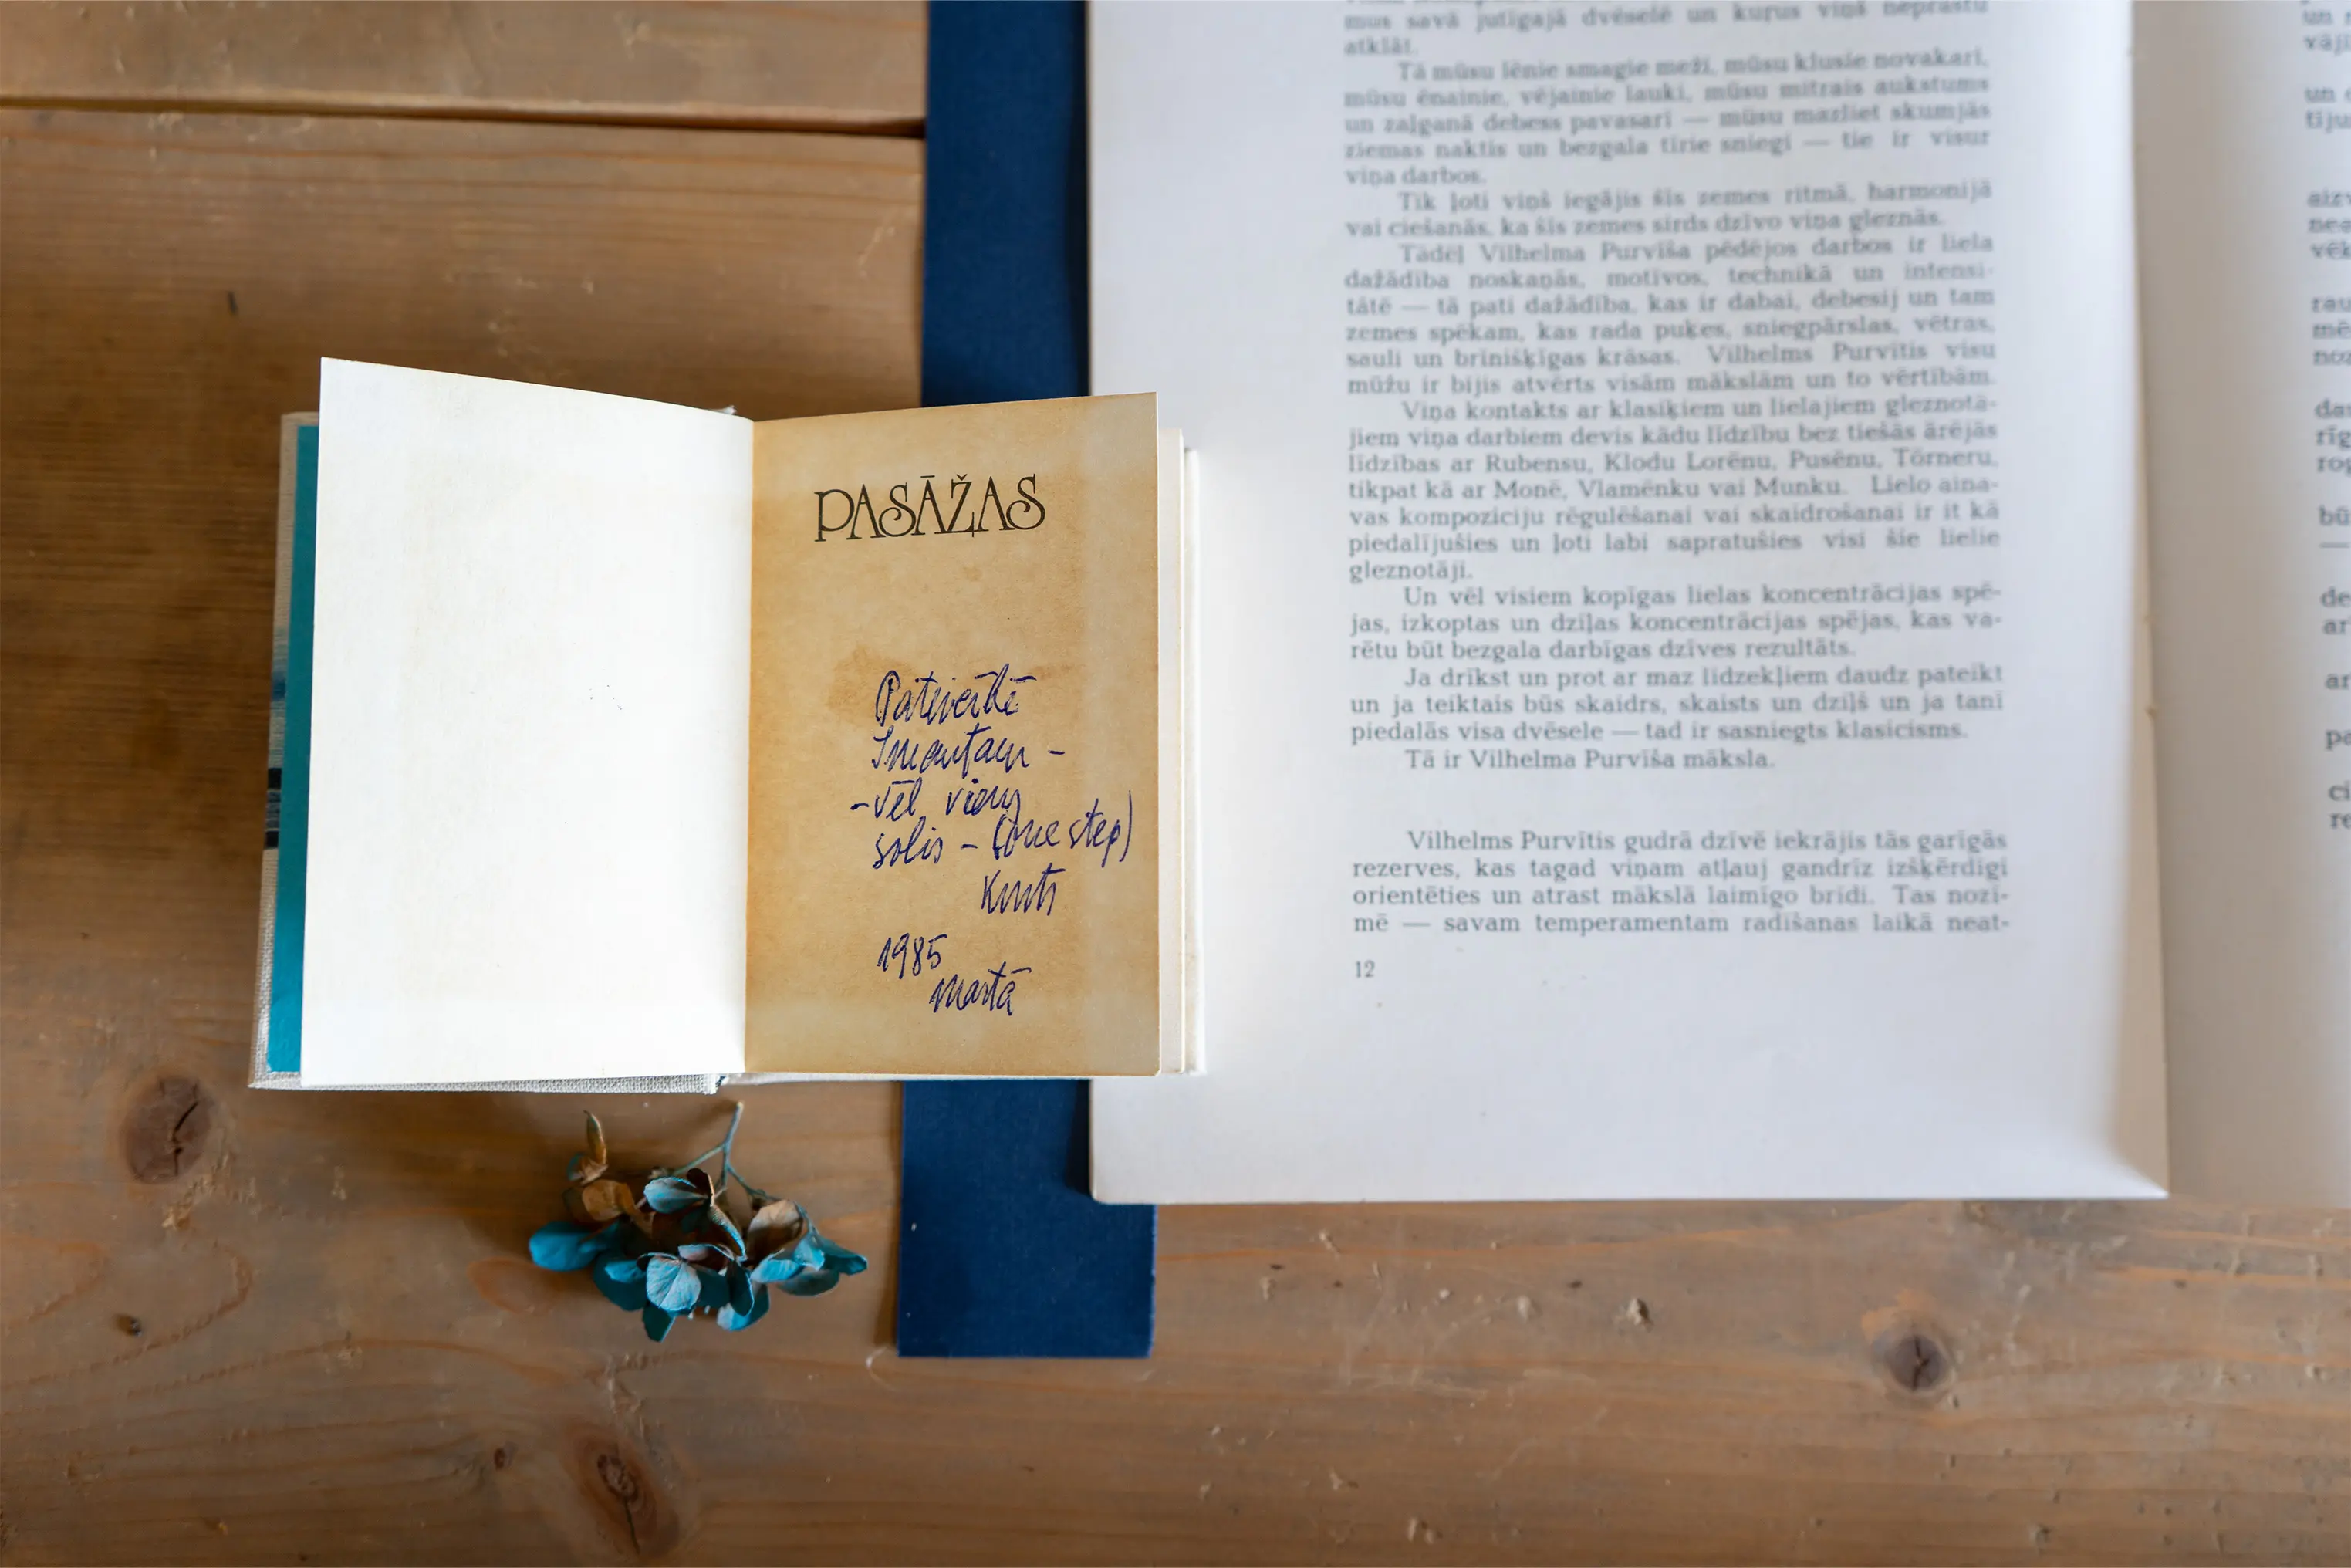 PASĀŽAS
Pateicībā
Imantam –
– vēl vienu
solis – (one step)
1985
martā
mus savā jutīgajā dvēselē un kuŗus viņš neprastu
atklāt.
Tā mūsu lēnie smagie meži, mūsu klusie novakari,
mūsu ēnainie, vējainie lauki, mūsu mitrais aukstums
un zaļganā debess pavasarī — mūsu mazliet skumjās
ziemas naktis un bezgala tīrie sniegi — tie ir visur
viņa darbos.
Tik ļoti viņš iegājis šīs zemes ritmā, harmonijā
vai ciešanās, ka šīs zemes sirds dzīvo viņa gleznās.
Tādēļ Vilhelma Purvīša pēdējos darbos ir liela
dažādība noskaņās, motīvos, technikā un intensi-
tātē — tā pati dažādība, kas ir dabai, debesij un tam
zemes spēkam, kas rada puķes, sniegpārslas, vētras,
sauli un brīnišķīgas krāsas. Vilhelms Purvītis visu
mūžu ir bijis atvērts visām mākslām un to vērtībām.
Viņa kontakts ar klasiķiem un lielajiem gleznotā-
jiem viņa darbiem devis kādu līdzību bez tiešās ārējās
līdzības ar Rubensu, Klodu Lorēnu, Pusēnu, Tōrneru,
tikpat kā ar Monē, Vlamēnku vai Munku. Lielo aina-
vas kompozīciju rēgulēšanai vai skaidrošanai ir it kā
piedalījušies un ļoti labi sapratušies visi šie lielie
gleznotāji.
Un vēl visiem kopīgas lielas koncentrācijas spē-
jas, izkoptas un dziļas koncentrācijas spējas, kas va-
rētu būt bezgala darbīgas dzīves rezultāts.
Ja drīkst un prot ar maz līdzekļiem daudz pateikt
un ja teiktais būs skaidrs, skaists un dziļš un ja tanī
piedalās visa dvēsele — tad ir sasniegts klasicisms.
Tā ir Vilhelma Purvīša māksla.
Vilhelms Purvītis gudrā dzīvē iekrājis tās garīgās
rezerves, kas tagad viņam atļauj gandrīz izšķērdīgi
orientēties un atrast mākslā laimīgo brīdi. Tas nozī-
mē — savam temperamentam radīšanas laikā neat-
12